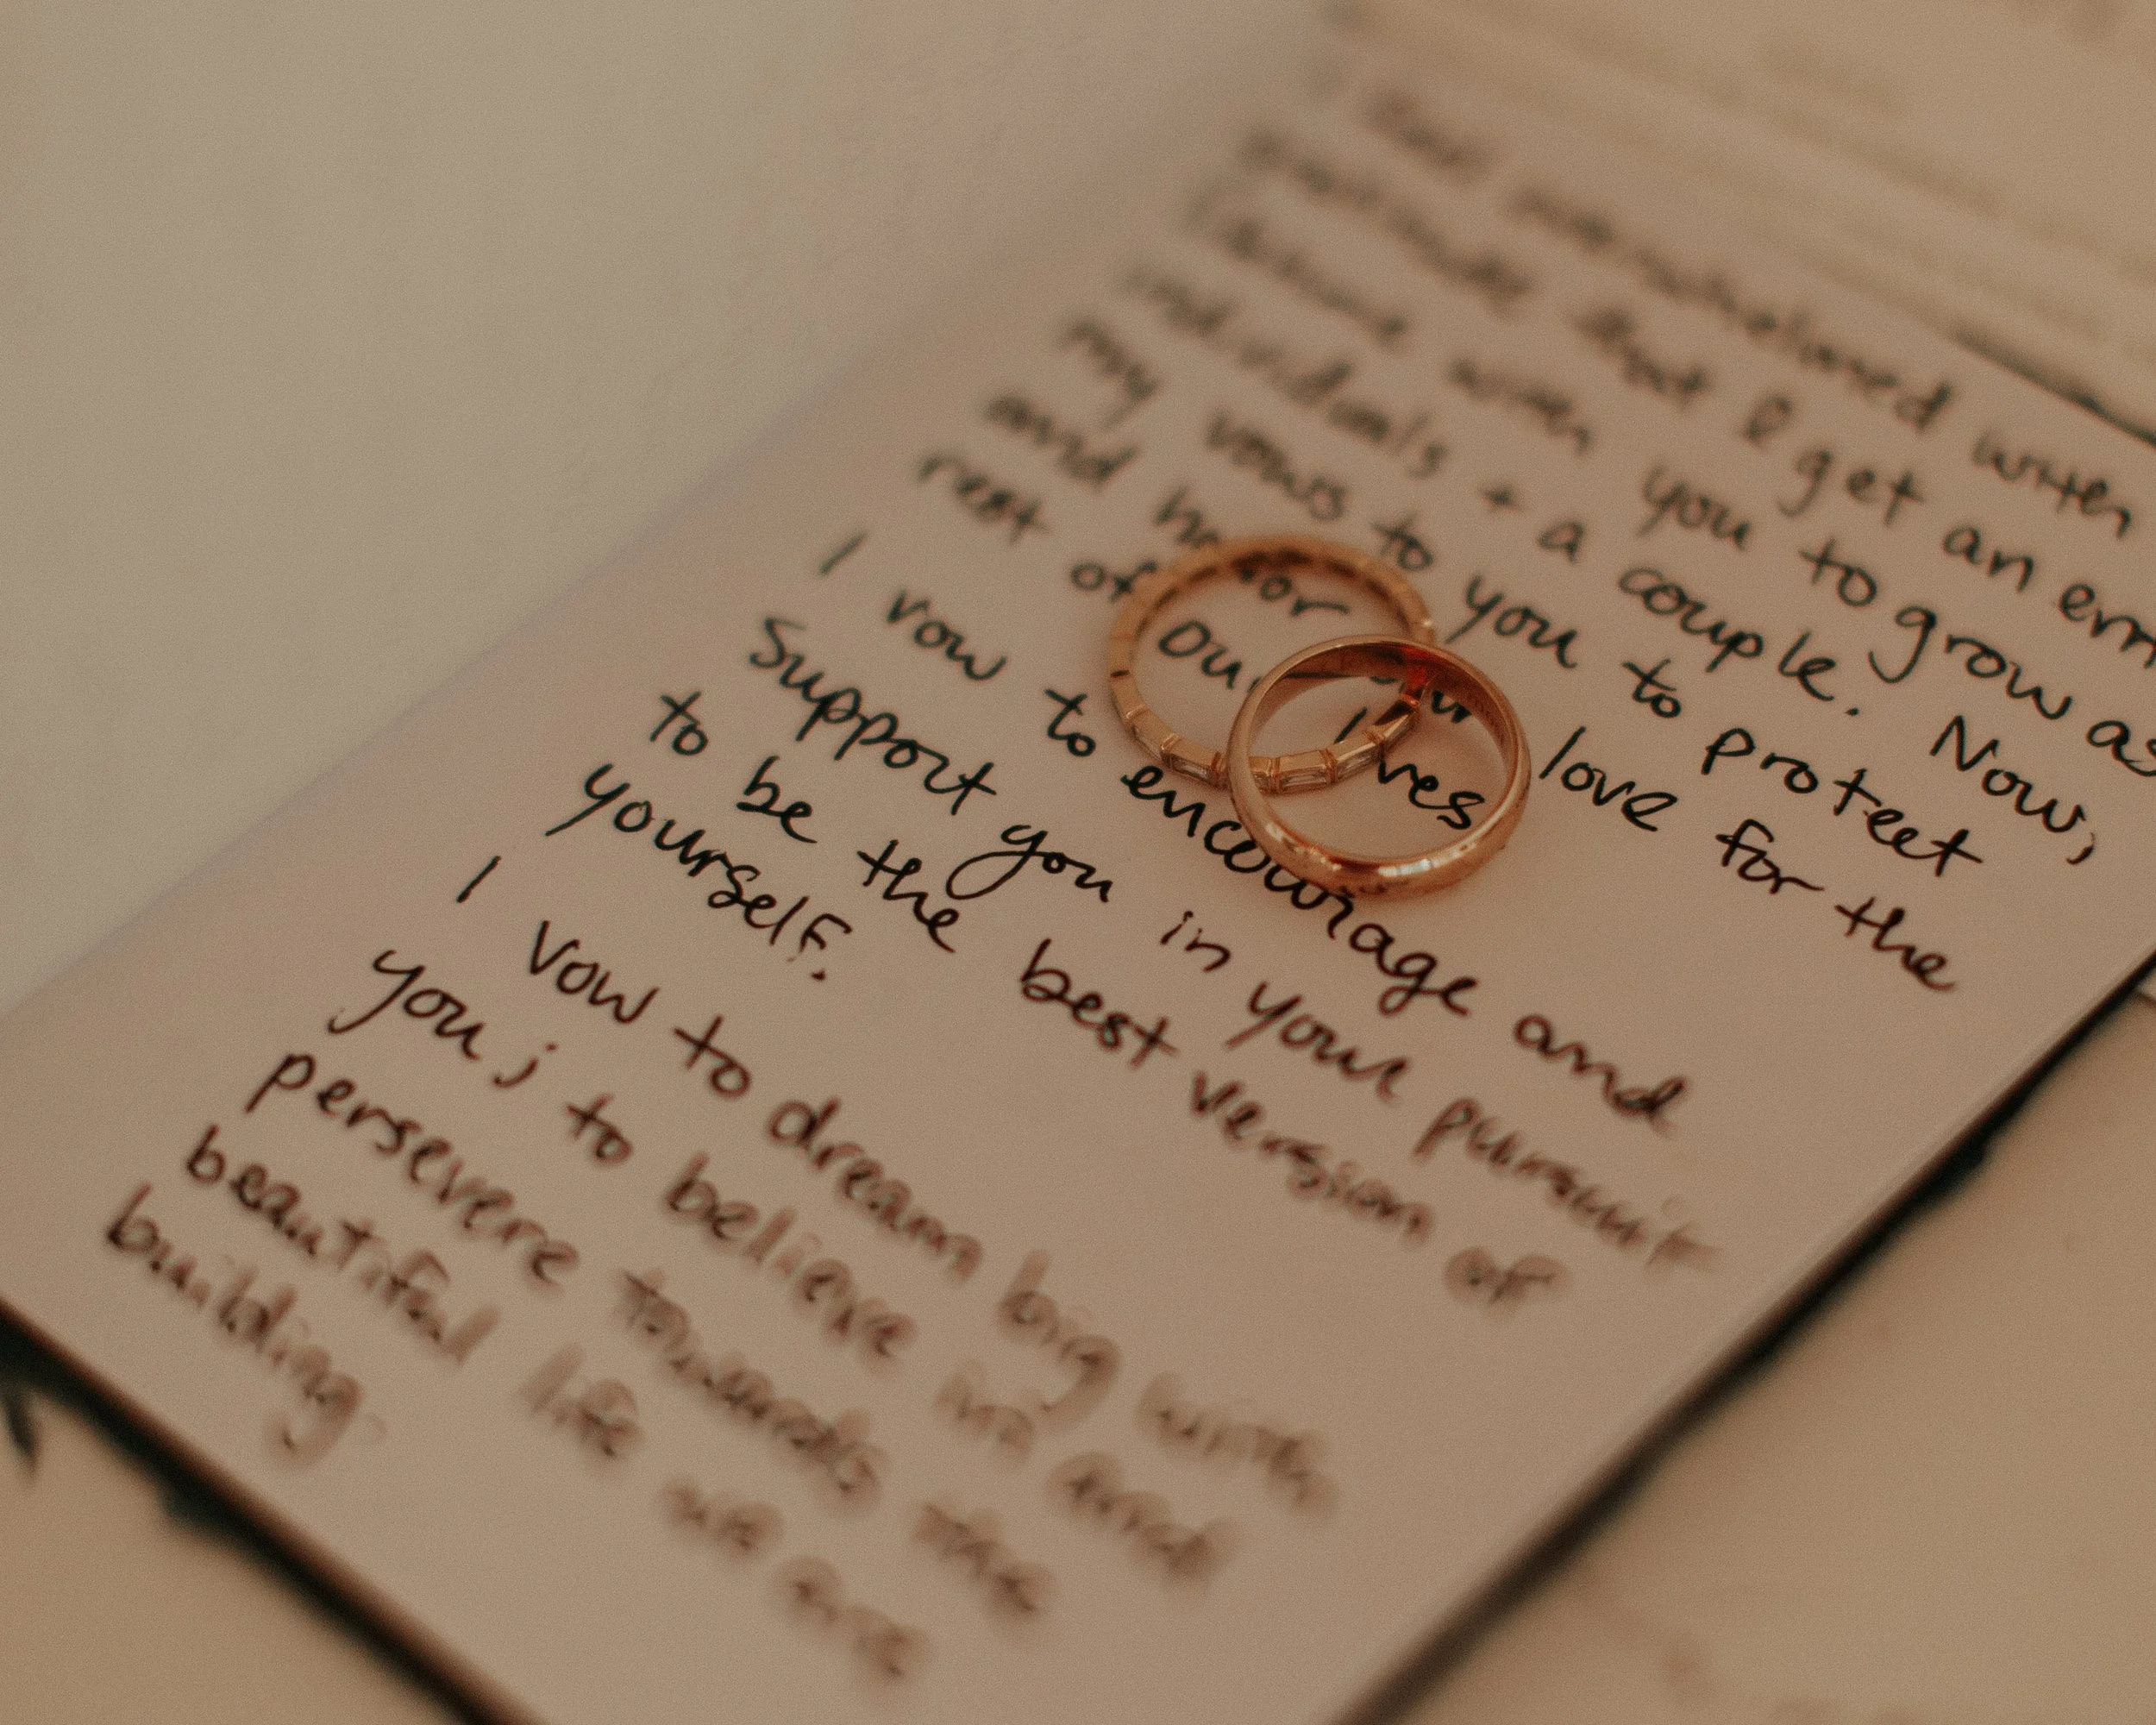 feel overwhelmed with
gratitude that I get an
with you to grow as
individuals + a couple. Now,
my vows to you to protect
and honor our love for the
rest of our lives
I vow to encourage and
Support you in your pursuit
to be the best version of
yourself.
I vow to dream big with
you; to believe in and
persevere towards the
beautiful life we are
building